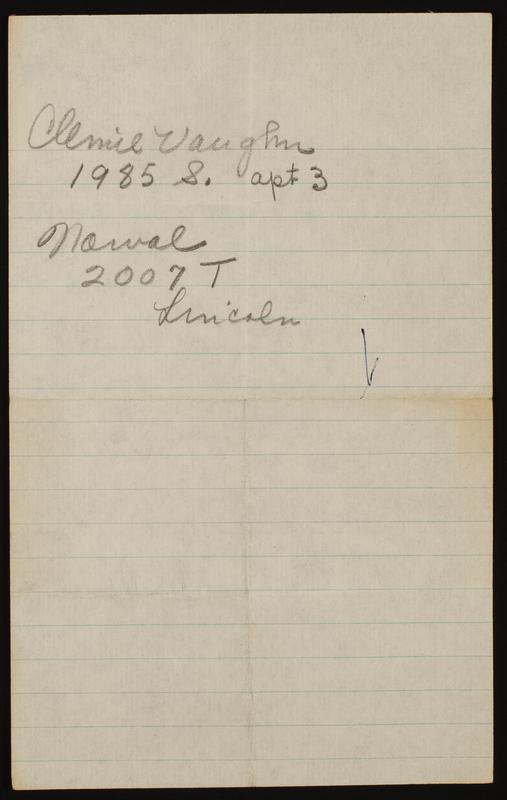 Clemie Vaughn
1985 S. apt 3
Norval
2007 T
Lincoln